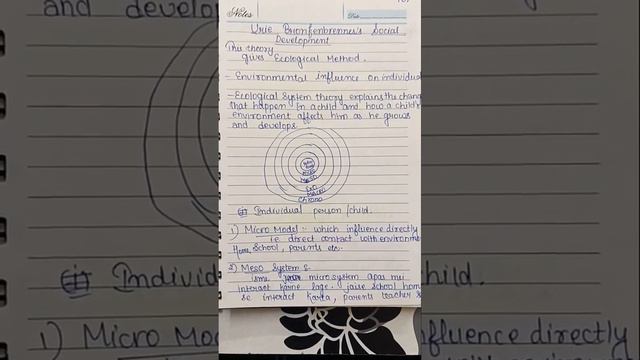 Notes
Date
Urie Bronfenbrenner's Social
Development
This theory
gives Ecological Method.
- Environmental influence on individual
- Ecological System theory explains the chan
that happen in a child and how a child's
environment affects him as he grows
and develops
Micro
Meso
Exo
Macro
Chrono
Individual person/child.
1) Micro Model :- which influence directly
ie direct contact with environm
Home, School, parents etc.
2) Meso System :-
isme micro system apas mei
interact karne lage. jaise school home
se interact karta, parents teacher s
Individ
child.
1) Micro Mo
fluence directly